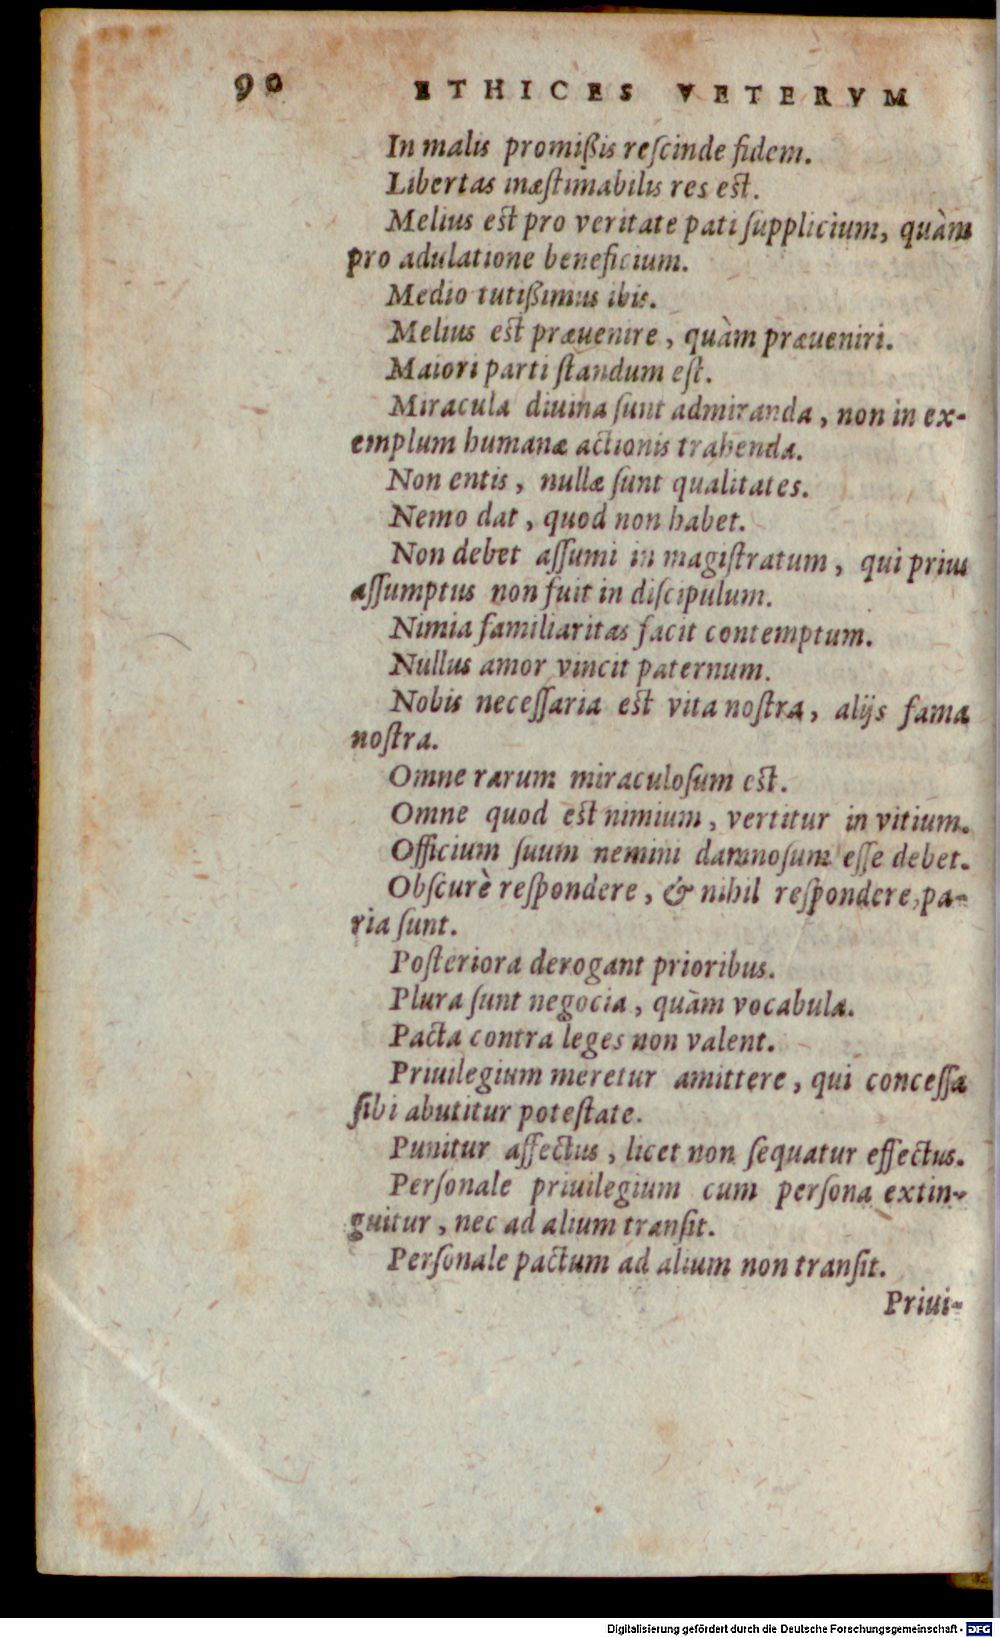 90 ETHICES VETERVM
In malis promißis reſcinde fidem.
Libertas inæſtimabilis res eſt.
Melius eſt pro veritate pati ſupplicium, quàm
pro adulatione beneficium.
Medio tutißimus ibis.
Melius eſt præuenire, quàm præueniri.
Maiori parti ſtandum eſt.
Miracula diuina ſunt admiranda, non in ex-
emplum humanæ actionis trahenda.
Non entis, nullæ ſunt qualitates.
Nemo dat, quod non habet.
Non debet aſſumi in magiſtratum, qui prius
aſſumptus non fuit in diſcipulum.
Nimia familiaritas facit contemptum.
Nullus amor vincit paternum.
Nobis neceſſaria eſt vita noſtra, alijs fama
noſtra.
Omne rarum miraculoſum eſt.
Omne quod eſt nimium, vertitur in vitium.
Officium ſuum nemini damnoſum eſſe debet.
Obſcurè reſpondere, & nihil reſpondere, pa-
ria ſunt.
Poſteriora derogant prioribus.
Plura ſunt negocia, quàm vocabula.
Pacta contra leges non valent.
Priuilegium meretur amittere, qui conceſſa
ſibi abutitur poteſtate.
Punitur affectus, licet non ſequatur effectus.
Perſonale priuilegium cum perſona extin-
guitur, nec ad alium tranſit.
Perſonale pactum ad alium non tranſit.
Priui-
Digitalisierung gefördert durch die Deutsche Forschungsgemeinschaft - DFG